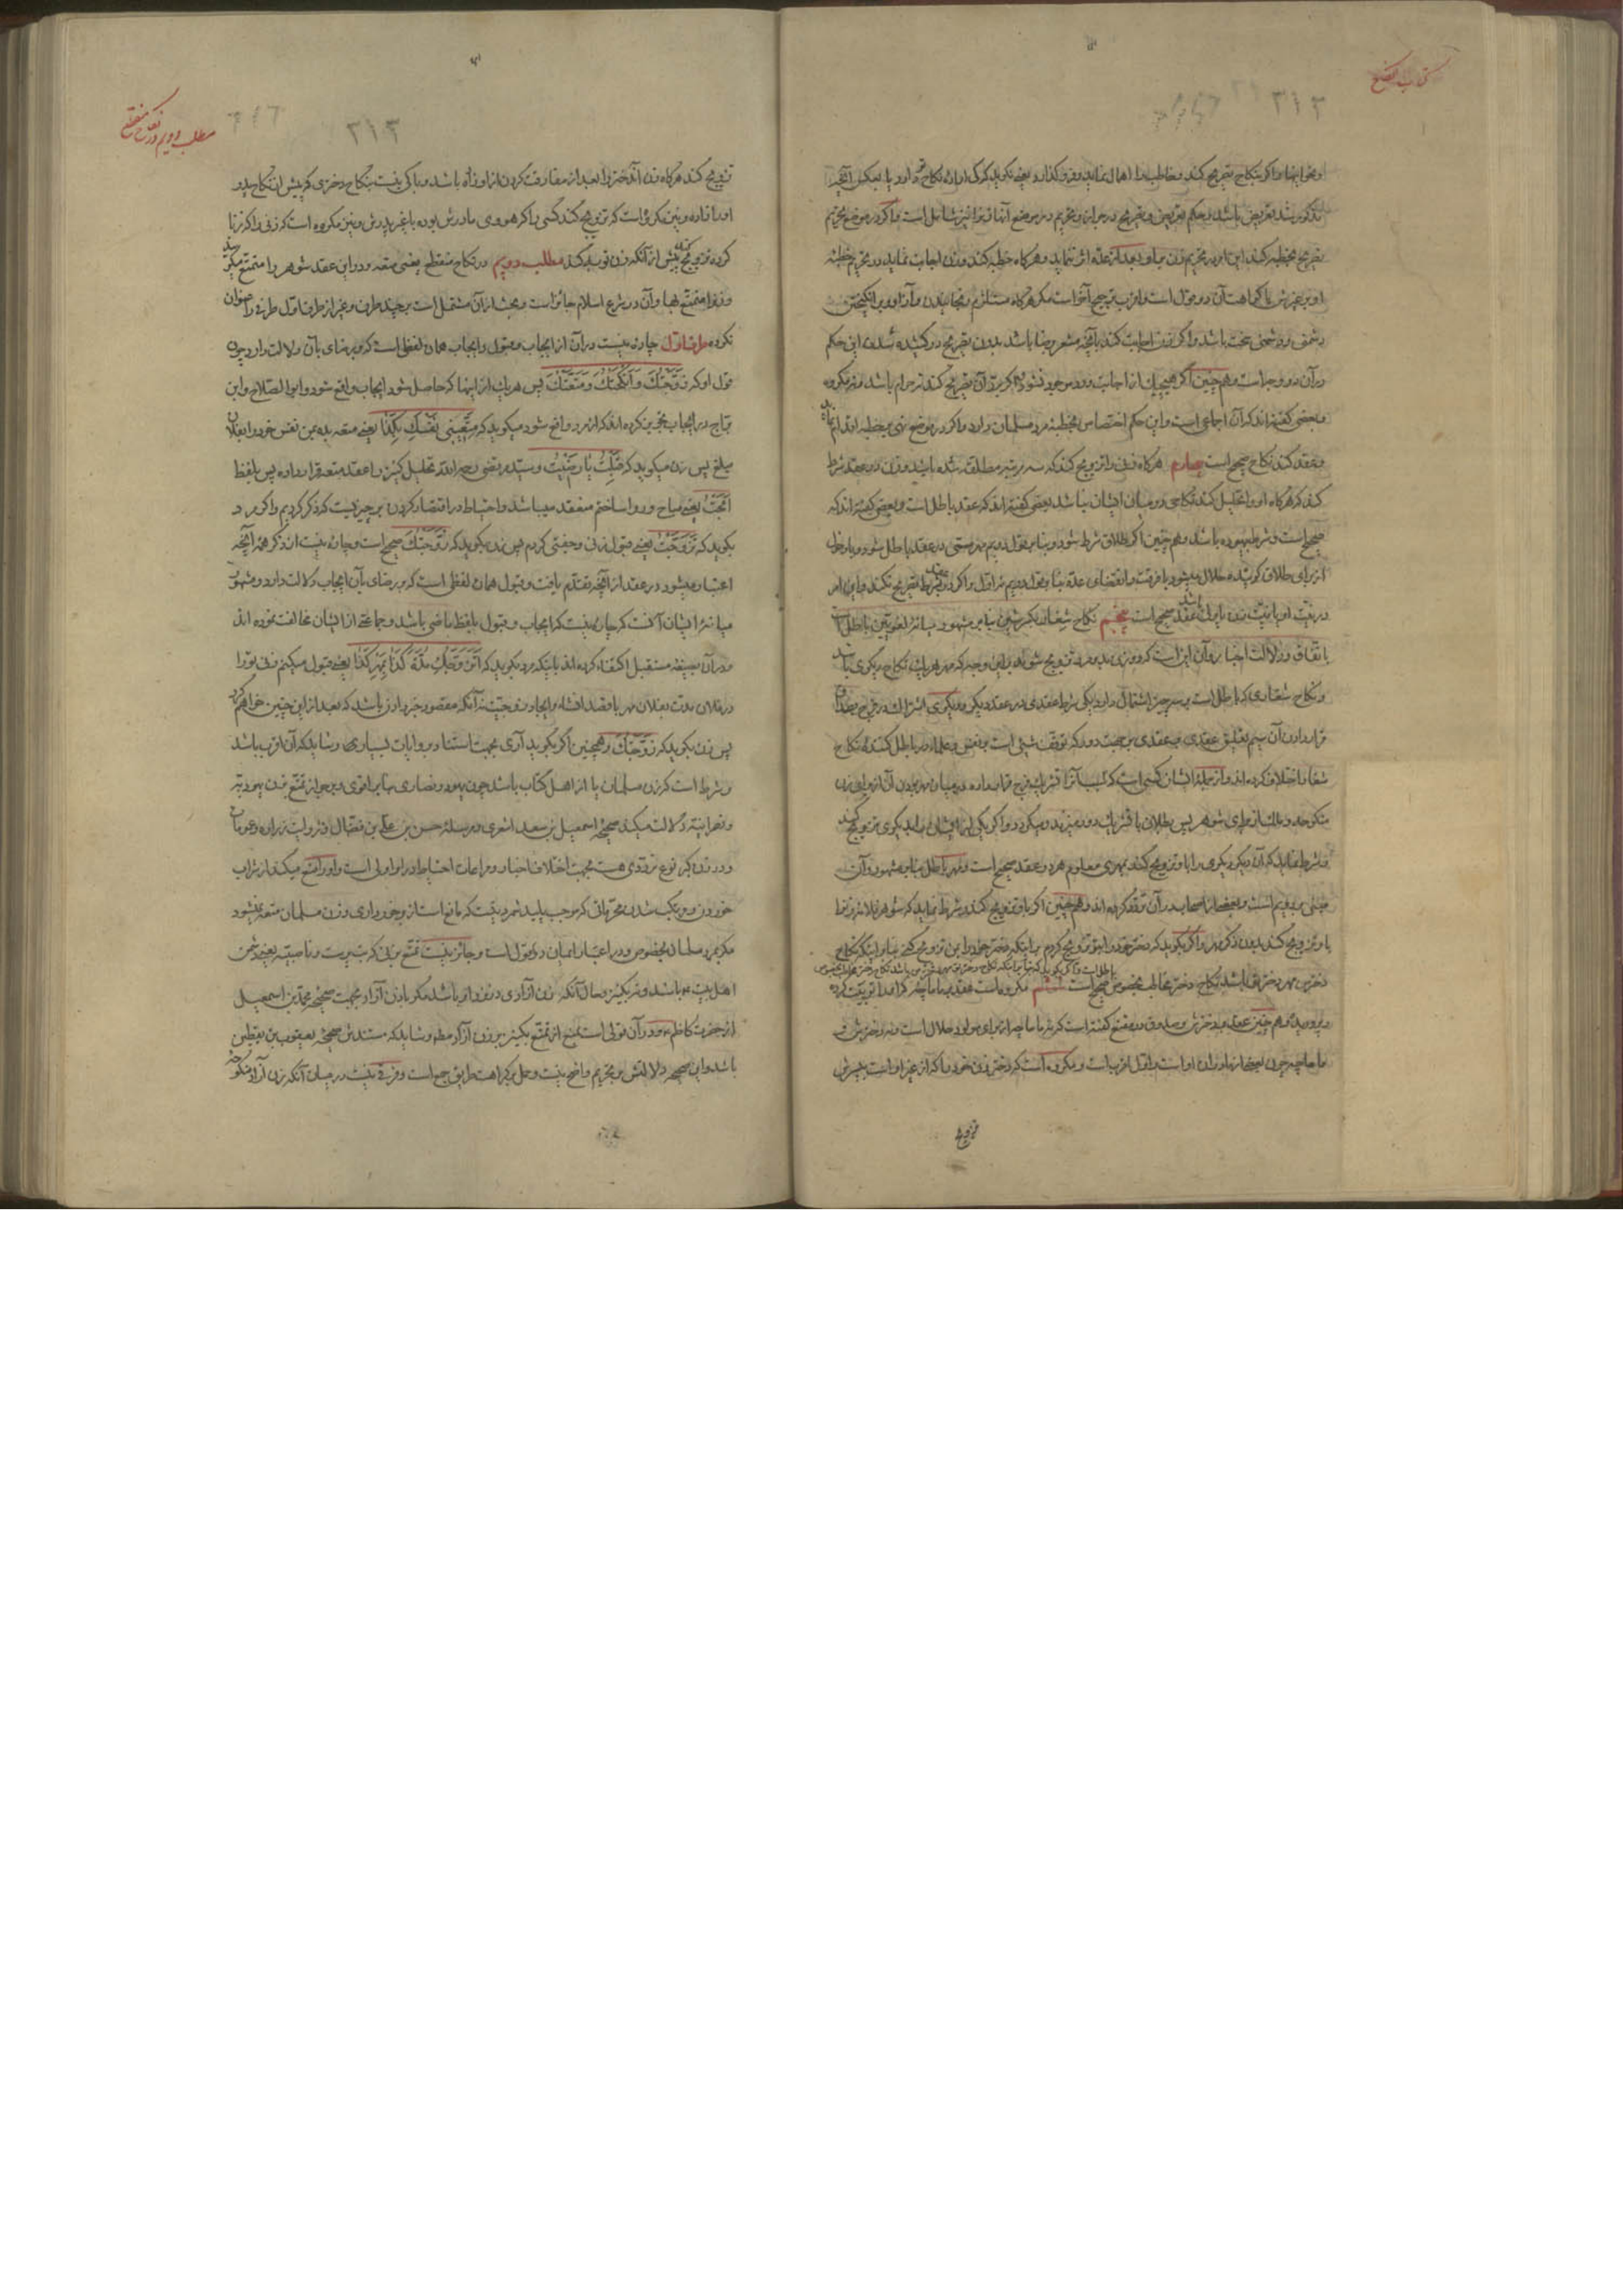 ۳۱۳
او بخواهند و اگر بنکاح تصریح کند و مخاطب را
مذکور شد تعریض باشد و حکم تعریض و تصریح در جواز و تحریم در موضع
تصریح بخطبه کند این امر در تحریم زن بر او بعد از عدّه اثر ننماید و هرگاه خطبه کند و زن اجابت نماید در تحریم خطبه
او بر غیرش یا کراهت آن دو قول است و اقرب ترجیح آخر است مگر هرگاه مستلزم
دشمنی سخت باشد و اگر زن اجابت کند بآنچه مشعر برضا باشد بدون تصریح در کشیده شدن این حکم
در آن دو وجه است و هم چنین اگر
و بعضی گفته‌اند که آن اجماعی است و این حکم اختصاص بخطبهٔ مرد مسلمان دارد و اگر در موضع نهی بر خطبه اقدام نماید
و عقد کند نکاح صحیح است چهارم هرگاه زنی را تزویج کند که سه مرتبه مطلّقه شده باشد و زن در عقد شرط
کند که هرگاه او را تحلیل کند نکاحی در میان ایشان نباشد بعضی گفته‌اند که عقد باطل است و بعضی گفته‌اند که
صحیح است و شرط بیهوده باشد و هم چنین اگر طلاق شرط شود و بنا بر قول دویم بدرستی در عقد باطل شود
از برای طلاق گوینده حلال میشود با فرقت و انقضای عدّه بنا بر قول دویم نه اوّل و اگر در عقد بشرط تصریح نکند و این امر
در نیّت او یا نیّت زن یا ولیّ باشد عقد صحیح است پنجم نکاح شغار بکسر شین بنا بر مشهور میانهٔ لغویّین باطل است
باتفاق و دلالت اخبار و آن این است که دو زن بدو مرد تزویج شوند باین وجه که مهر هر یک نکاح دیگری باشد
و نکاح شغاری که باطل است بر سه چیز اشتمال دارد یکی شرط عقدی در عقد دیگر و دیگری اشتراک در فرج
قرار دادن آن سیم تعلیق عقدی بر عقدی بر جهت دور که توقف شیء است بر نفس و علما در باطل کنندهٔ نکاح
شغار اختلاف کرده‌اند و از جملهٔ ایشان کسی است که سبب آنرا تشریک فرج قرار داده
منکوحه و ملک از برای شوهر پس بطلان با تشریک دور میزند و میگردد و اگر یکی از ایشان بدیگری تزویج کند
و شرط نماید که آن دیگر دیگری را باو تزویج کند بمهری معلوم هر دو عقد صحیح است و مهر باطل بنا بر مشهور و آن
مبنی بر دویم است و بعضی از اصحاب در آن توقف کرده‌اند و هم چنین اگر باو تزویج کند و شرط نماید که شوهر فلان زن را
باو تزویج کند بدون ذکر مهر و اگر بگوید که دختر خود را بتو تزویج کردم بر اینکه دختر خود را بمن تزویج کنی بنا بر اینکه نکاح
دخترت مهر دختر من باشد نکاح دختر مخاطب بخصوص صحیح است ششم مکروه است عقد بر ماماچه هرگاه او را تربیت کرده
و هم چنین عقد بر دخترش و صدوق در مقنع گفته است که نه ماماچه از برای مولود حلال است و نه دخترش و
ماماچه چون بعضی از مادران او است و اوّل اقرب است و مکروه است که دختر زن خود را که از غیر او است بپسرش
تزویج
مطلب دویم در نکاح منقطع
۳۱۳
تزویج کند هرگاه زن آن دختر را بعد از مفارقت کردن از او زاده باشد و باکی نیست بنکاح دختری که پیش از نکاح پدر
او زاده و نیز مکروه است که تزویج کند کسی را که هووی مادرش بوده با غیر پدرش و نیز مکروه است که زنی را که زنا
کرده تزویج کند پیش از آنکه زن توبه کند مطلب دویم در نکاح منقطع یعنی متعه و در این عقد شوهر را متمتّع میگویند
و زن را متمتّع بها و آن در شرع اسلام جائز است و بحث از آن مشتمل است بر چند طرف و غیر از طرف اوّل طرفی را عنوان
نکرده طرف اوّل چاره نیست در آن از ایجاب و قبول و ایجاب همان لفظی است که بر رضای بآن دلالت دارد چون
قول او که زَوَّجْتُكَ وَ أَنْكَحْتُكَ وَ مَتَّعْتُكَ پس هر یک از اینها که حاصل شود ایجاب واقع شود و ابوالصلاح و ابن
برّاج در ایجاب تجویز کرده‌اند که از مرد واقع شود میگوید که مَتِّعِينِي نَفْسَكِ بِكَذَا یعنی متعه بده بمن نفس خود را بفلان
مبلغ پس زن میگوید که قَبِلْتُ یا رَضِيتُ و سیّد مرتضی رحمه الله تحلیل کنیز را عقد متعه قرار داده پس بلفظ
أَبَحْتُ یعنی مباح و روا ساختم منعقد میباشد و احتیاط در اقتصار کردن بر چیزیست که ذکر کردیم و اگر مرد
بگوید که تَزَوَّجْتُ یعنی قبول زنی و جفتی کردم پس زن بگوید که زَوَّجْتُكَ صحیح است و چاره نیست از ذکر همهٔ آنچه
اعتبار میشود در عقد از آنچه تقدّم یافت و قبول همان لفظی است که بر رضای بآن ایجاب دلالت دارد و مشهور
میانهٔ ایشان آنست که چاره نیست که ایجاب و قبول بلفظ ماضی باشد و جماعتی از ایشان مخالفت نموده‌اند
و در آن بصیغهٔ مستقبل اکتفا کرده‌اند باینکه مرد بگوید که أَتَزَوَّجُكِ مُدَّةَ كَذَا بِمَهْرِ كَذَا یعنی قبول میکنم زنی تو را
در فلان مدت بفلان مهر با قصد انشاء و ایجاد زوجیّت نه آنکه مقصود خبر دادن باشد که بعد از این چنین خواهم کرد
پس زن بگوید که زَوَّجْتُكَ و همچنین اگر بگوید آری بجهت استناد بروایات بسیاری و شاید که آن اقرب باشد
و شرط است که زن مسلمان یا از اهل کتاب باشد چون یهود و نصاری بنا بر اقوی و بر جواز تمتّع زن یهودیّه
و نصرانیّه دلالت میکند صحیحهٔ اسمعیل بن سعد اشعری و مرسلهٔ حسن بن علی بن فضّال و روایت زراره
و در زن گبر نوع تردّدی هست بجهت اختلاف اخبار و مراعات احتیاط در او اولی است و او را منع میکند از شراب
خوردن و مرتکب شدن محرّماتی که موجب پلید شمردنست که مانع است از برخورداری و زن مسلمان متعه نمیشود
مگر بمرد مسلمان بخصوص و در اعتبار ایمان دو قول است و جائز نیست تمتّع بزنی که بت پرست و ناصبیّه یعنی دشمن
اهل بیت ع باشد و نه بکنیز و حال آنکه زن آزادی در نزد او باشد مگر باذن آزاد بجهت صحیحهٔ محمد بن اسمعیل
از حضرت کاظم ع و در آن قولی است بمنع از تمتّع بکنیز بر زن آزاد مطلقا و شاید که مستندش صحیحهٔ یعقوب بن یقطین
باشد و این صحیحه دلالتش بر تحریم واضح نیست و حمل بر کراهت طریق جمع است و فرقی نیست در میان آنکه زن آزاد منکوحه